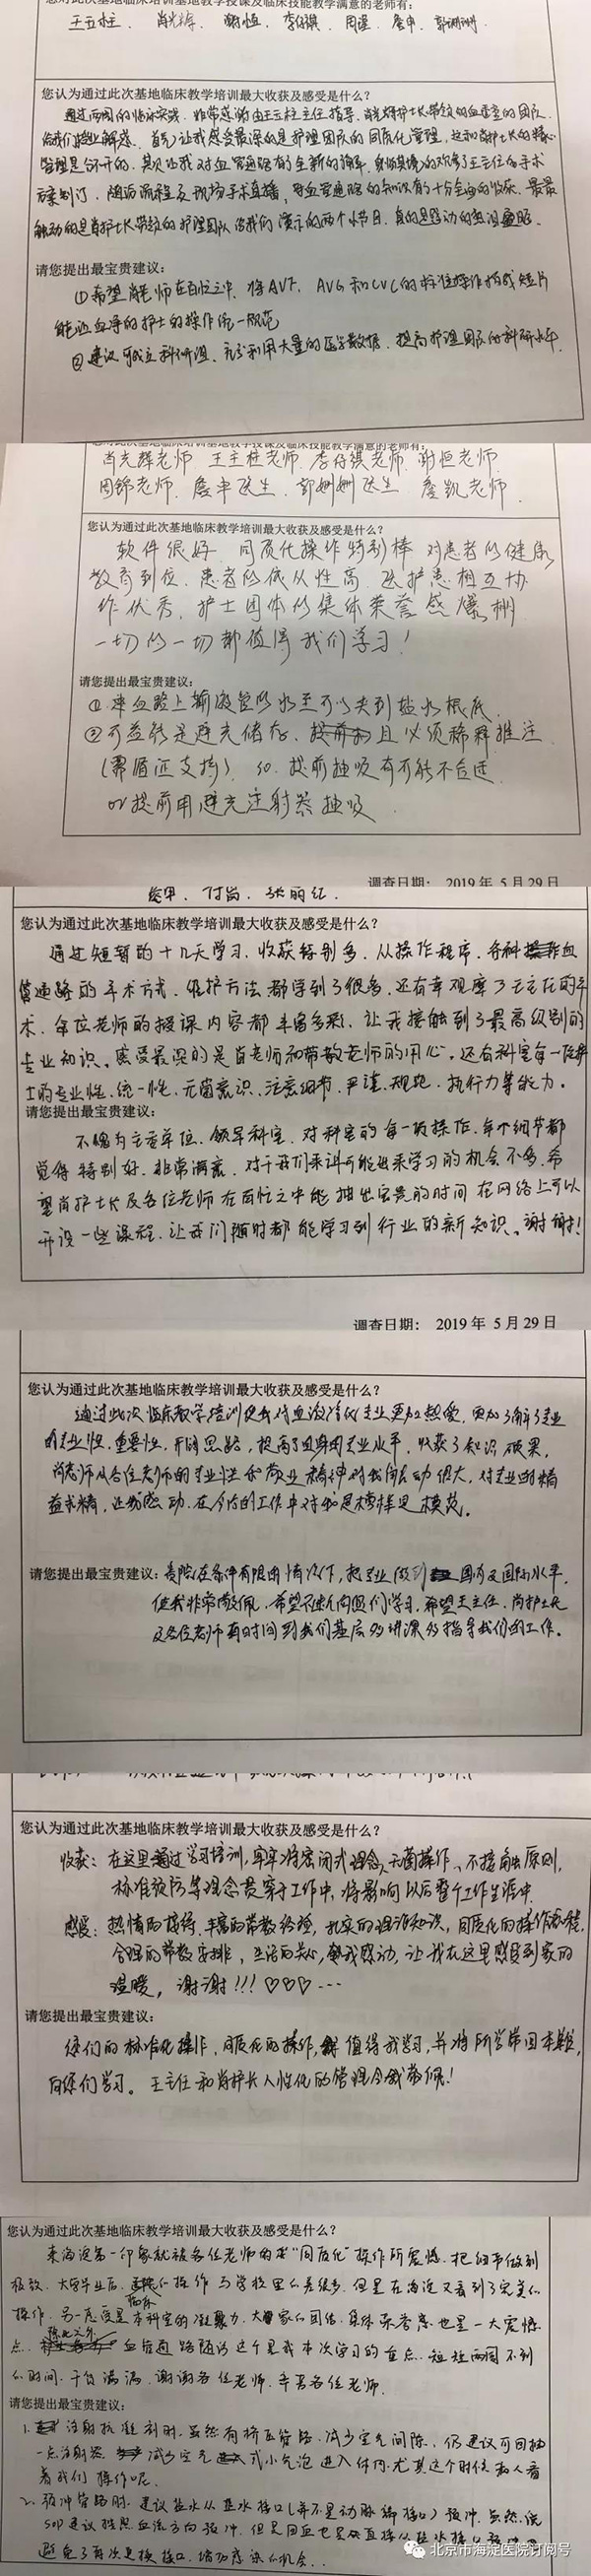 您对此次基地临床培训基地教学授课及临床技能教学满意的老师有：
王玉柱、肖光辉、谢恒、李仔祺、周锦、詹申、郭姗姗、
您认为通过此次基地临床教学培训最大收获及感受是什么？
通过两周的临床实践，非常感谢由王玉柱主任指导，肖光辉护士长带领的血透室的团队
给我们授业解惑。首先让我感受最深的是护理团队的同质化管理，这和肖护士长的精心
管理是分不开的。其次让我对血管通路有了全新的领率，身临其境的观摩了王主任的手术
方案制订，随访流程及现场手术直播，导血管通路的知识有了十分全面的收获。最最
触动的是肖护士长带领的护理团队给我们演示的两个小节目，真的是感动的热泪盈眶。
请您提出最宝贵建议：
①希望肖老师在百忙之中，将AVF、AVG和CVC的标准操作拍成短片
能让血净的护士的操作统一规范
②建议可成立科研组，充分利用大量的医学数据，提高护理团队的科研水平.
您对此次基地临床培训基地教学授课及临床技能教学满意的老师有：
肖光辉老师、王玉柱老师、李仔祺老师、谢恒老师
周锦老师、詹申医生、郭姗姗医生、詹凯老师、
您认为通过此次基地临床教学培训最大收获及感受是什么？
软件很好、同质化操作特别棒、对患者的健康
教育到位、患者的依从性高、医护患相互协
作优秀、护士团体的集体荣誉感爆棚
一切的一切都值得我们学习！
请您提出最宝贵建议：
①单血路上输液管的水至可以夹到盐水根底、
②可益能是避光储存、且必须稀释推注
（需循证支持）、so、提前抽吸有可能不合适
or提前用避光注射器抽吸、
调查日期： 2019年5月29日
詹申、付岗、张丽红、
您认为通过此次基地临床教学培训最大收获及感受是什么？
通过短暂的十几天学习，收获特别多，从操作程序、各种血
管通路的手术方式、维护方法都学到了很多，还有幸观摩了王主任的手
术，各位老师的授课内容都丰富多彩，让我接触到了最高级别的
专业知识。感受最深的是肖老师和带教老师的用心，还有科室每一位护
士的专业性、统一性、无菌意识、注意细节、严谨、规范、执行力等能力。
请您提出最宝贵建议：
不愧为主委单位、领军科室、对科室的每一项操作、每个细节都
觉得特别好、非常满意、对于我们来讲可能出来学习的机会不多，希
望肖护士长及各位老师在百忙之中能抽出宝贵的时间在网络上可以
开设一些课程，让我们随时都能学习到行业的新知识。谢谢！
调查日期： 2019年5月29日
您认为通过此次基地临床教学培训最大收获及感受是什么？
通过此次临床教学培训使我对血液净化专业更加热爱，更加了解了专业
的专业性、重要性，开阔思路，提高了自身的专业水平，收获了知识硕果，
肖老师及各位老师的专业性和敬业精神对我触动很大，对专业的精
益求精，让我感动，在今后的工作中对我是榜样是模范。
请您提出最宝贵建议：贵院在条件有限的情况下，把专业做到国内及国际水平，
使我非常敬佩，希望不断向您们学习，希望王主任、肖护士长
及各位老师有时间到我们基层多讲课多指导我们的工作。
您认为通过此次基地临床教学培训最大收获及感受是什么？
收获：在这里通过学习培训，牢牢将密闭式理念、无菌操作、不接触原则，
标准预防等理念贯穿于工作中，将影响以后整个工作生涯中.
感受：热情的接待、丰富的带教经验，扎实的理论知识，同质化的操作流程，
合理的带教安排，生活的关心，令我感动，让我在这里感受到家的
温暖，谢谢!!!♡♡♡…
请您提出最宝贵建议：
您们的标准化操作、同质化的操作，值得我学习，并将所学带回本科，
向您们学习。王主任和肖护长人性化的管理令我敬佩！
您认为通过此次基地临床教学培训最大收获及感受是什么？
来海淀第一印象就被各位老师的"同质化"操作所震憾、把细节做到
极致、大学毕业后、临床的操作与学校里的差很多、但是在海淀又看到了完美的
操作、另一感受是本科室的凝聚力、大家的团结、集体荣誉感也是一大震憾
点、除此之外血管通路随访这个是我本次学习的重点、短短两周不到
的时间、干货满满、谢谢各位老师、辛苦各位老师.
请您提出最宝贵建议：
1、注射抗凝剂时、虽然有桥在管路、减少空气间隙、仍建议可回抽
一点注射器、减少空气式小气泡进入体内、尤其这个时候病人看
着我们操作呢.
2、预冲管路时、建议盐水从盐水接口(并不是动脉端接口)预冲、虽然说
SOP建议按照血流方向预冲、但是回血也是直接从盐水接口预冲、
避免了再次更换接口、增加感染的机会...
北京市海淀医院订阅号